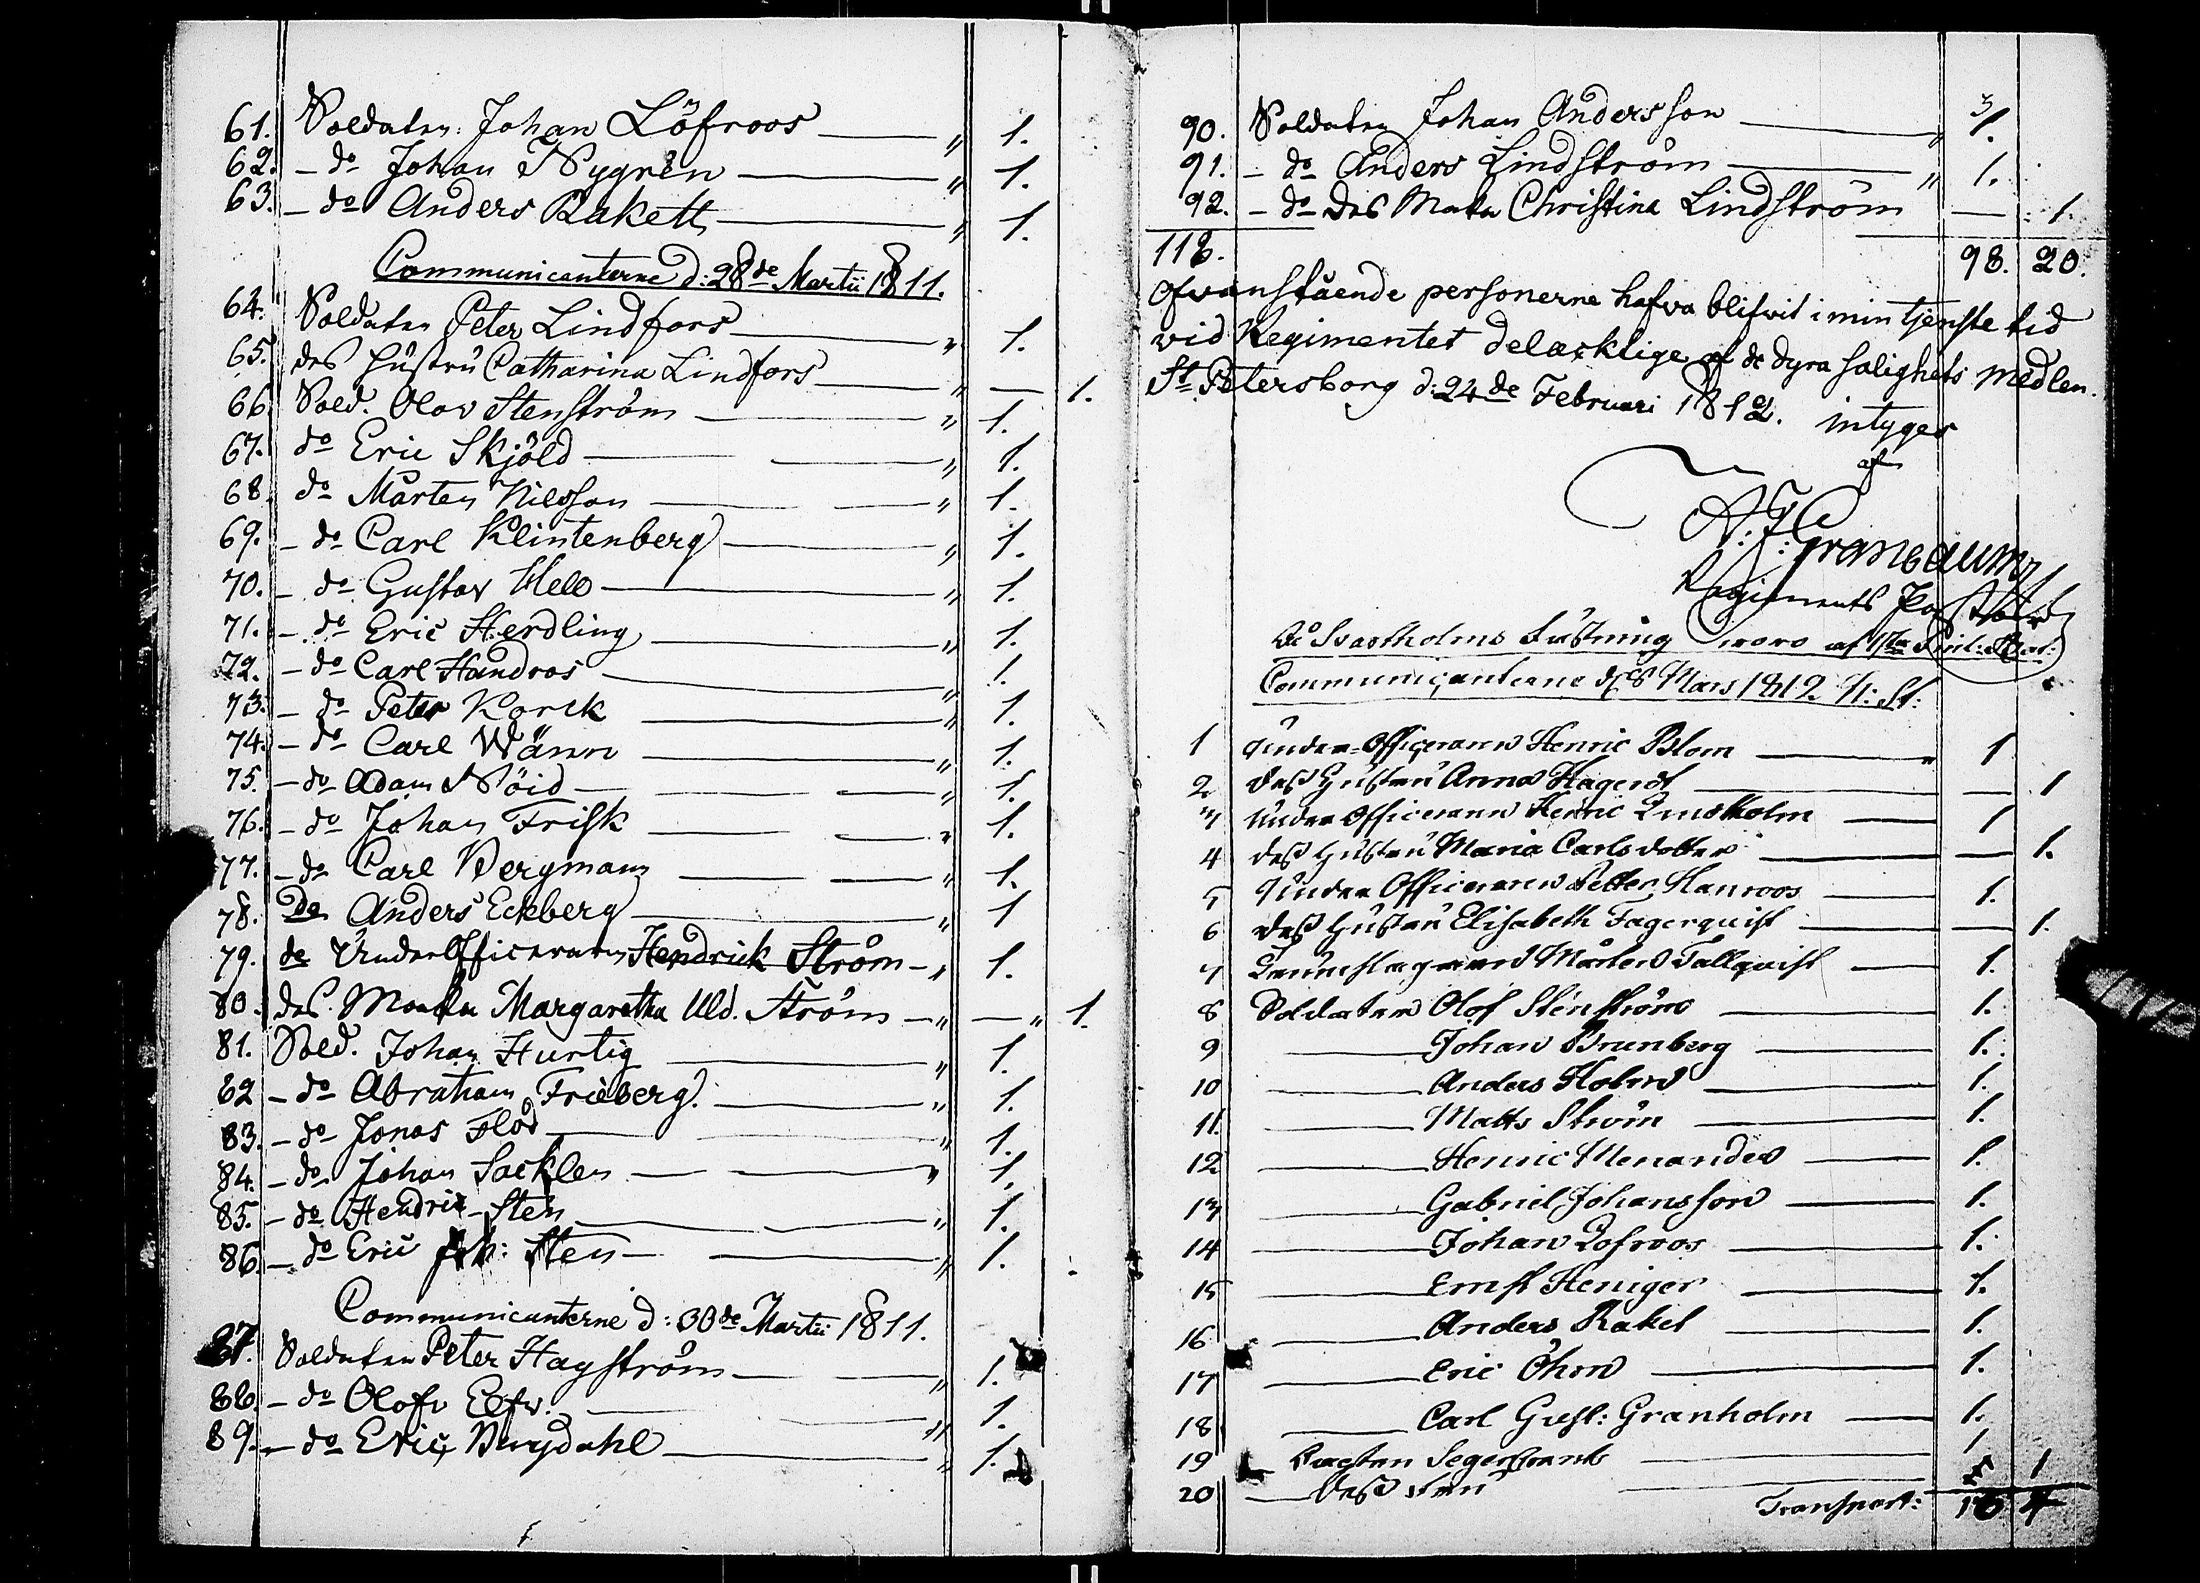 61. Soldaten: Johan Löfroos — " 1.
62. — do Johan Nygrèn — " 1.
63. — do Anders Rakett — " 1.
Communicanterne d: 28de Martii 1811.
64. Soldaten Peter Lindfors — " 1.
65. des hustru Catharina Lindfors — " — 1.
66. Sold. Olov Stenström — " 1.
67. do Eric Skjöld — " 1.
68. do Mårten Nilsson — " 1.
69. — do Carl Klintenberg — " 1.
70. — do Gustav — " 1.
71. — do Eric Herdling — " 1.
72. — do Carl Handros — " 1.
73. — do Peter Korck — " 1.
74. — do Carl Wänn — " 1.
75. — do Adam Nöid — " 1.
76. — do Johan Frisk — " 1.
77. — do Carl Bergman — " 1.
78. do Anders Eckberg — " 1
79. de Underofficeraren Hendrick Ström — " 1.
80. des Maka Margaretha Uld. Ström — " — " 1.
81. Sold. Johan Hurtig — " 1.
82 — do Abraham Frieberg. — " 1.
83. — do Jonas Flöd — " 1.
84. — do Johan Sacklen — " 1.
85. — do Hendric Sten — " 1.
86. — do Eric Joh: Sten — " 1.
Communicanterne d: 30de Martii 1811.
87. Soldaten Peter Hagström — " 1.
88. — do Olofv — " 1.
89. — do Eric Bergdahl — " 1.
90. Soldaten Johan Andersson — " 1.
91. — do Anders Lindström — " 1.
92. — do des Maka Christina Lindström — 1.
118. 98. 20.
Ofvanstående personerne hafva blifvit i min tjenste tid
vid Regimentet delacktige af de dyra salighets medlen.
St. Petersborg d: 24de Februari 1812. intyger
af
A: F: Granbaum
Regiments Pastor
På Svartholms Fästning
Communicanterne d. 8 Mars 1812. N: St:
1 Under-Officeraren Henric Blom — " 1
2 dess Hustru Anna Hagert — — 1
3 Under Officeraren Henric Lindholm — 1
4 dess Hustru Maria Carlsdotter — — 1.
5 Under Officeraren Petter Hanroos — 1.
6 dess Hustru Elisabeth Fagerquist — — 1.
7 Trumslagaren Mårten Tallquist — 1.
8 Soldaten Olof Stenström — 1.
9 — Johan Brunberg — 1.
10 — Anders Holm — 1.
11. — Matts Ström — 1.
12 — Henric Menander — 1.
13 — Gabriel Johansson — 1.
14 — Johan Lofroos — 1.
15 — Ernst Heniger — 1.
16 — Anders Raket — 1.
17 — Eric Öhrn — 1.
18 — Carl Gust: Granholm — 1.
19 Segerstrand — 1
20 — Dess fru — 1
Transport: 16 4